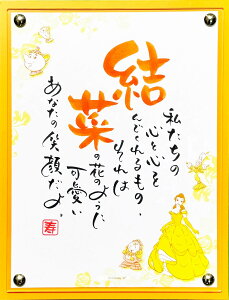 私たちの
心と心を
結んでくれるもの、
それは
菜の花のように
可愛い
あなたの笑顔だよ。
寿